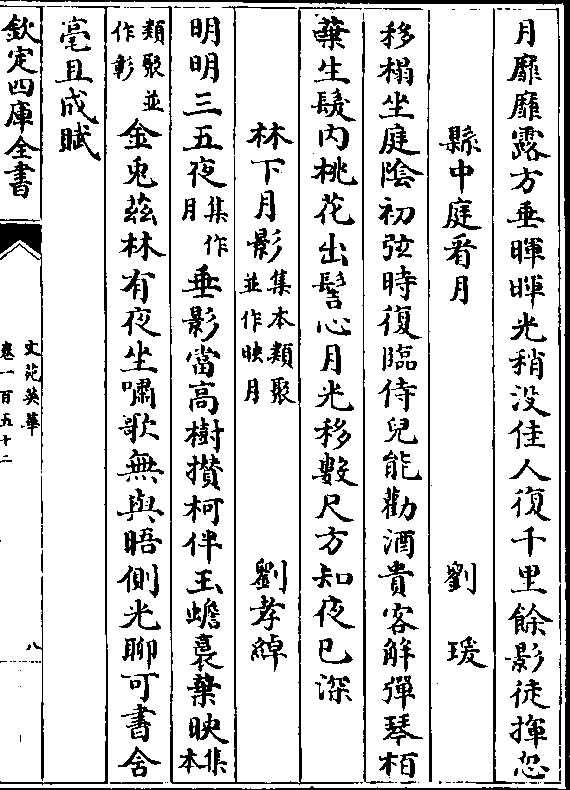 月靡靡露方垂暉暉光稍没佳人復千里餘影徒揮忽
縣中庭看月　劉瑗
移榻坐庭陰初弦時復臨侍兒能勸酒貴客解彈琴栢
葉生鬟内桃花出髻心月光移數尺方知夜已深
林下月影集本類聚並作映月　劉孝綽
明明三五夜集作月垂影當高樹攢柯伴玉蟾裛葉映集本
類聚並作彰金兎兹林有夜坐嘯歌無與晤側光聊可書含
毫且成賦
欽定四庫全書
文苑英華
卷一百五十二
八